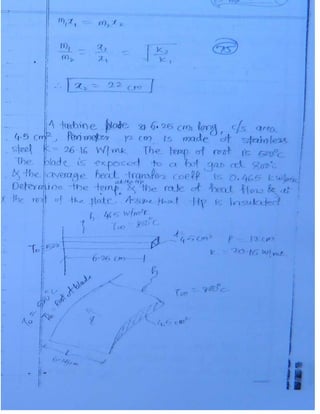 m₁x₁ = m₂x₂
m₁/m₂ = x₂/x₁ = √(K₂/K₁)
∴ x₂ = 22 cm
A turbine blade 6.25 cm long, c/s area
4.5 cm², Perimeter 12 cm is made of stainless
steel K = 26.16 W/mk The temp of root is 500°C
The blade is exposed to a hot gas at 800°C
& the average heat transfer coeff is 0.465 kW/m²k
Determine the temp & the rate of heat flow
the root of the plate. Assume that tip is insulated
h 465 W/m²k
T∞ = 850°C
T₀ = 500
4.5 cm² P = 12 cm
K = 26.16 W/mk
6.25 cm
T₀ = 500°C root of blade
T∞ = 850°C
4.5 cm²